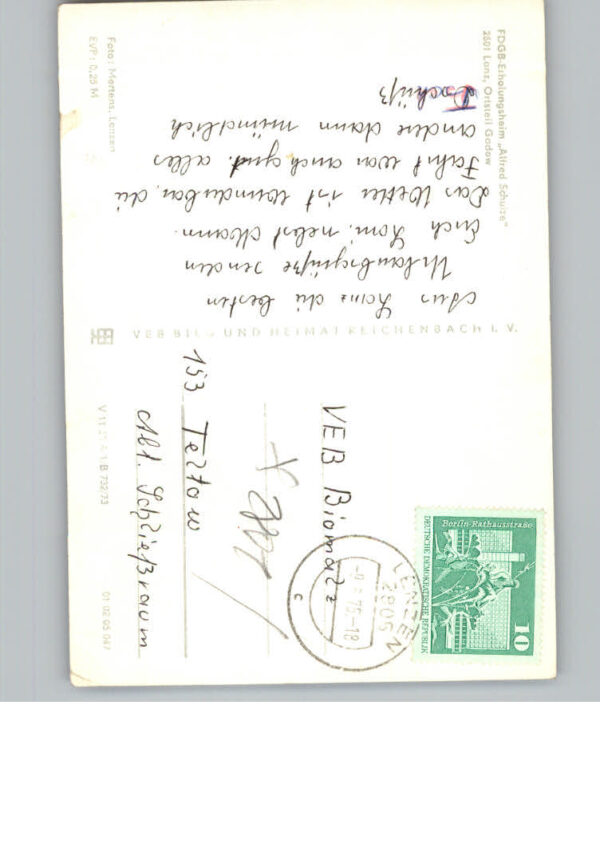 FDGB-Erholungsheim „Alfred Schulze“
2601 Lanz, Ortsteil Gadow
Aus Lanz die besten
Urlaubsgrüße senden
Euch Hom. nebst Mann.
Das Wetter ist wunderbar, die
Fahrt war auch gut. alles
andere dann mündlich
Tschüß
Foto: Mertens, Lenzen
EVP: 0,25 M
VEB BILD UND HEIMAT REICHENBACH I. V.
Berlin-Rathausstraße
DEUTSCHE DEMOKRATISCHE REPUBLIK
10
LENZEN
2906
75-18
c
VEB Biomalz
153 Teltow
Abt. Schließraum
B 732/73
01 02 05 047